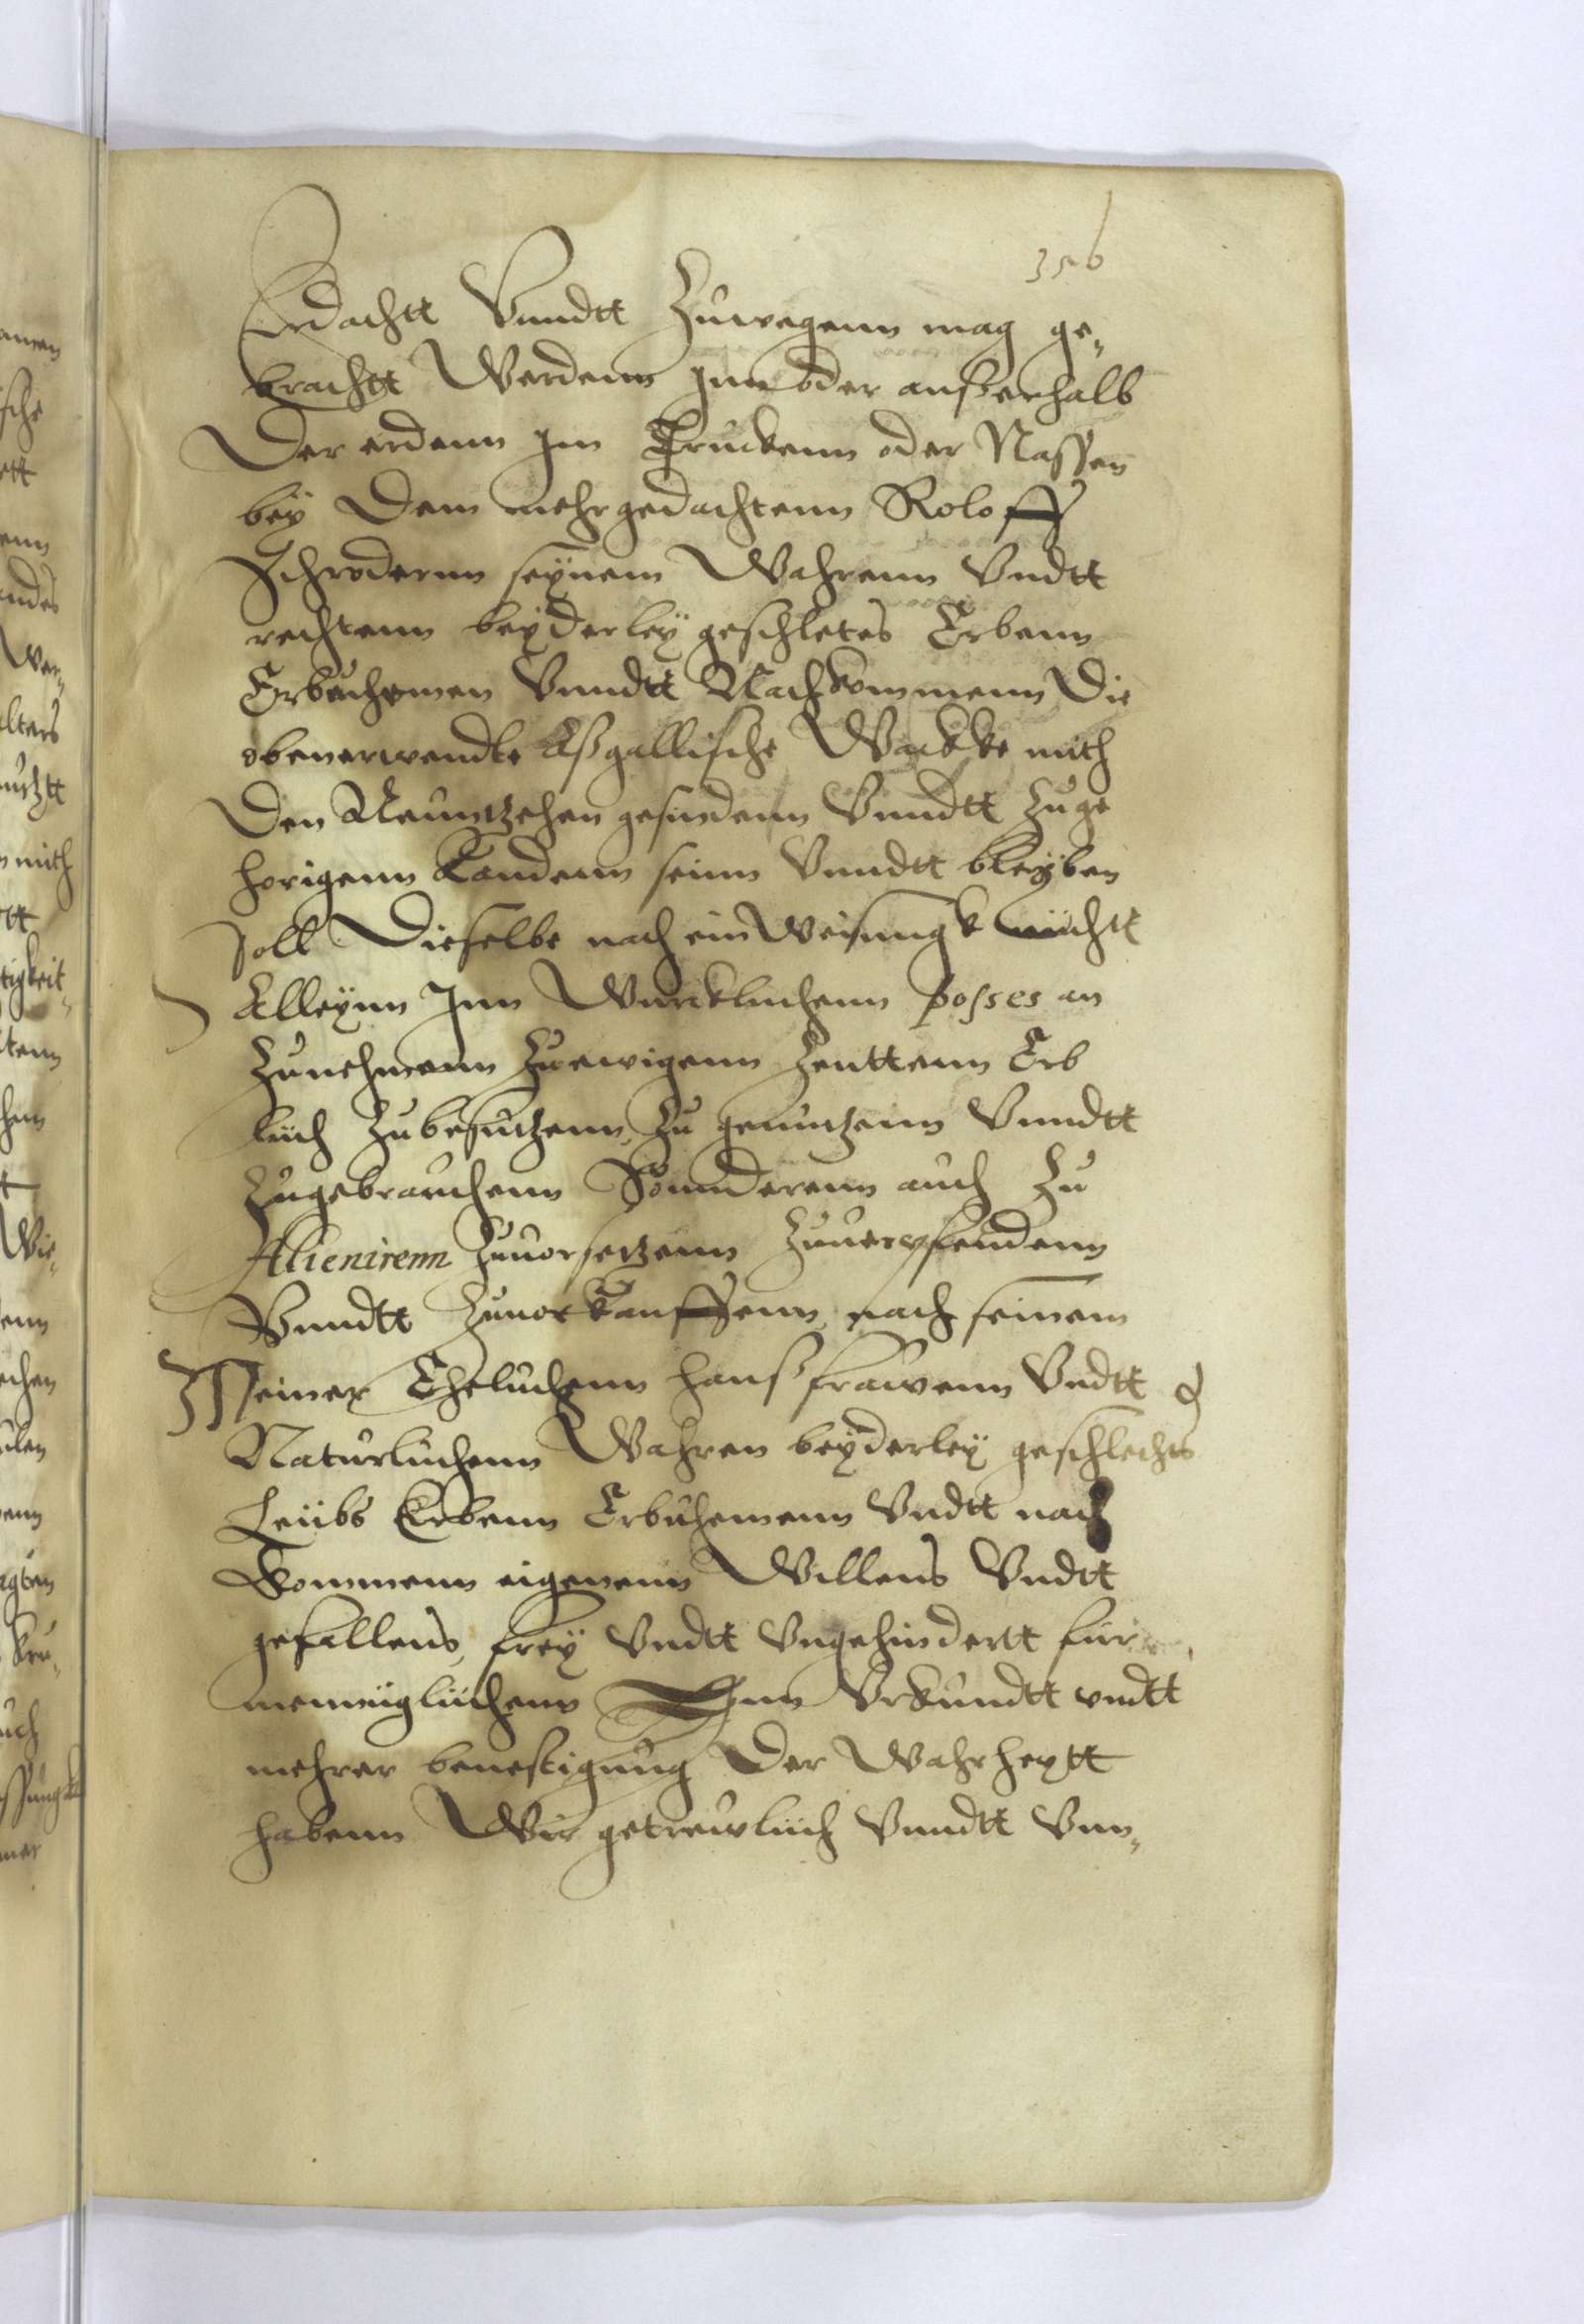 356
Erdachtt Vnndtt Zuwegenn mag ge„
brachtt Werdenn Jnn oder ausserhalb
Der erdenn Jm Truckenn oder Nassen
beÿ Dem mehrgedachtenn Roloff
Schrodernn seÿnem Wahrenn Vndtt
rechtenn beÿderleÿ geschletes Erbenn
Erbnehemen Vnndtt Nachkommenn Die
obenerwendte Aßgallische Wackke mith
Den Neuntzehen gesindenn Vnndtt Zuge
horigenn Landenn seinn Vnndtt bleÿben
soll Dieselbe nach einweisungk nichtt
Alleÿnn Jnn Wurcklichenn posses an
Zunehmenn Zu ewigenn Zeittenn Erb
lich Zubesitzenn, Zu genützenn Vnndtt
Zugebrauchenn Sonnderenn auch Zu
Alienirenn Zuuorsetzenn Zuuerpfendenn
Vnndtt Zuuorkauffenn, nach seinem
Seiner Ehelichenn haußfrawenn Vndtt
Natürlichenn Wahren beÿderleÿ geschlechts
Leibs Erbenn Erbnhemenn Vndtt nach
Kommenn eigenenn Willens Vndtt
gefallens, freÿ Vndtt Vngehindertt für
menniglichenn Jnn Vrkundtt vndtt
mehrer beuestigung Der Wahrheytt
habenn Wir getrewlich Vnndtt Vnn„